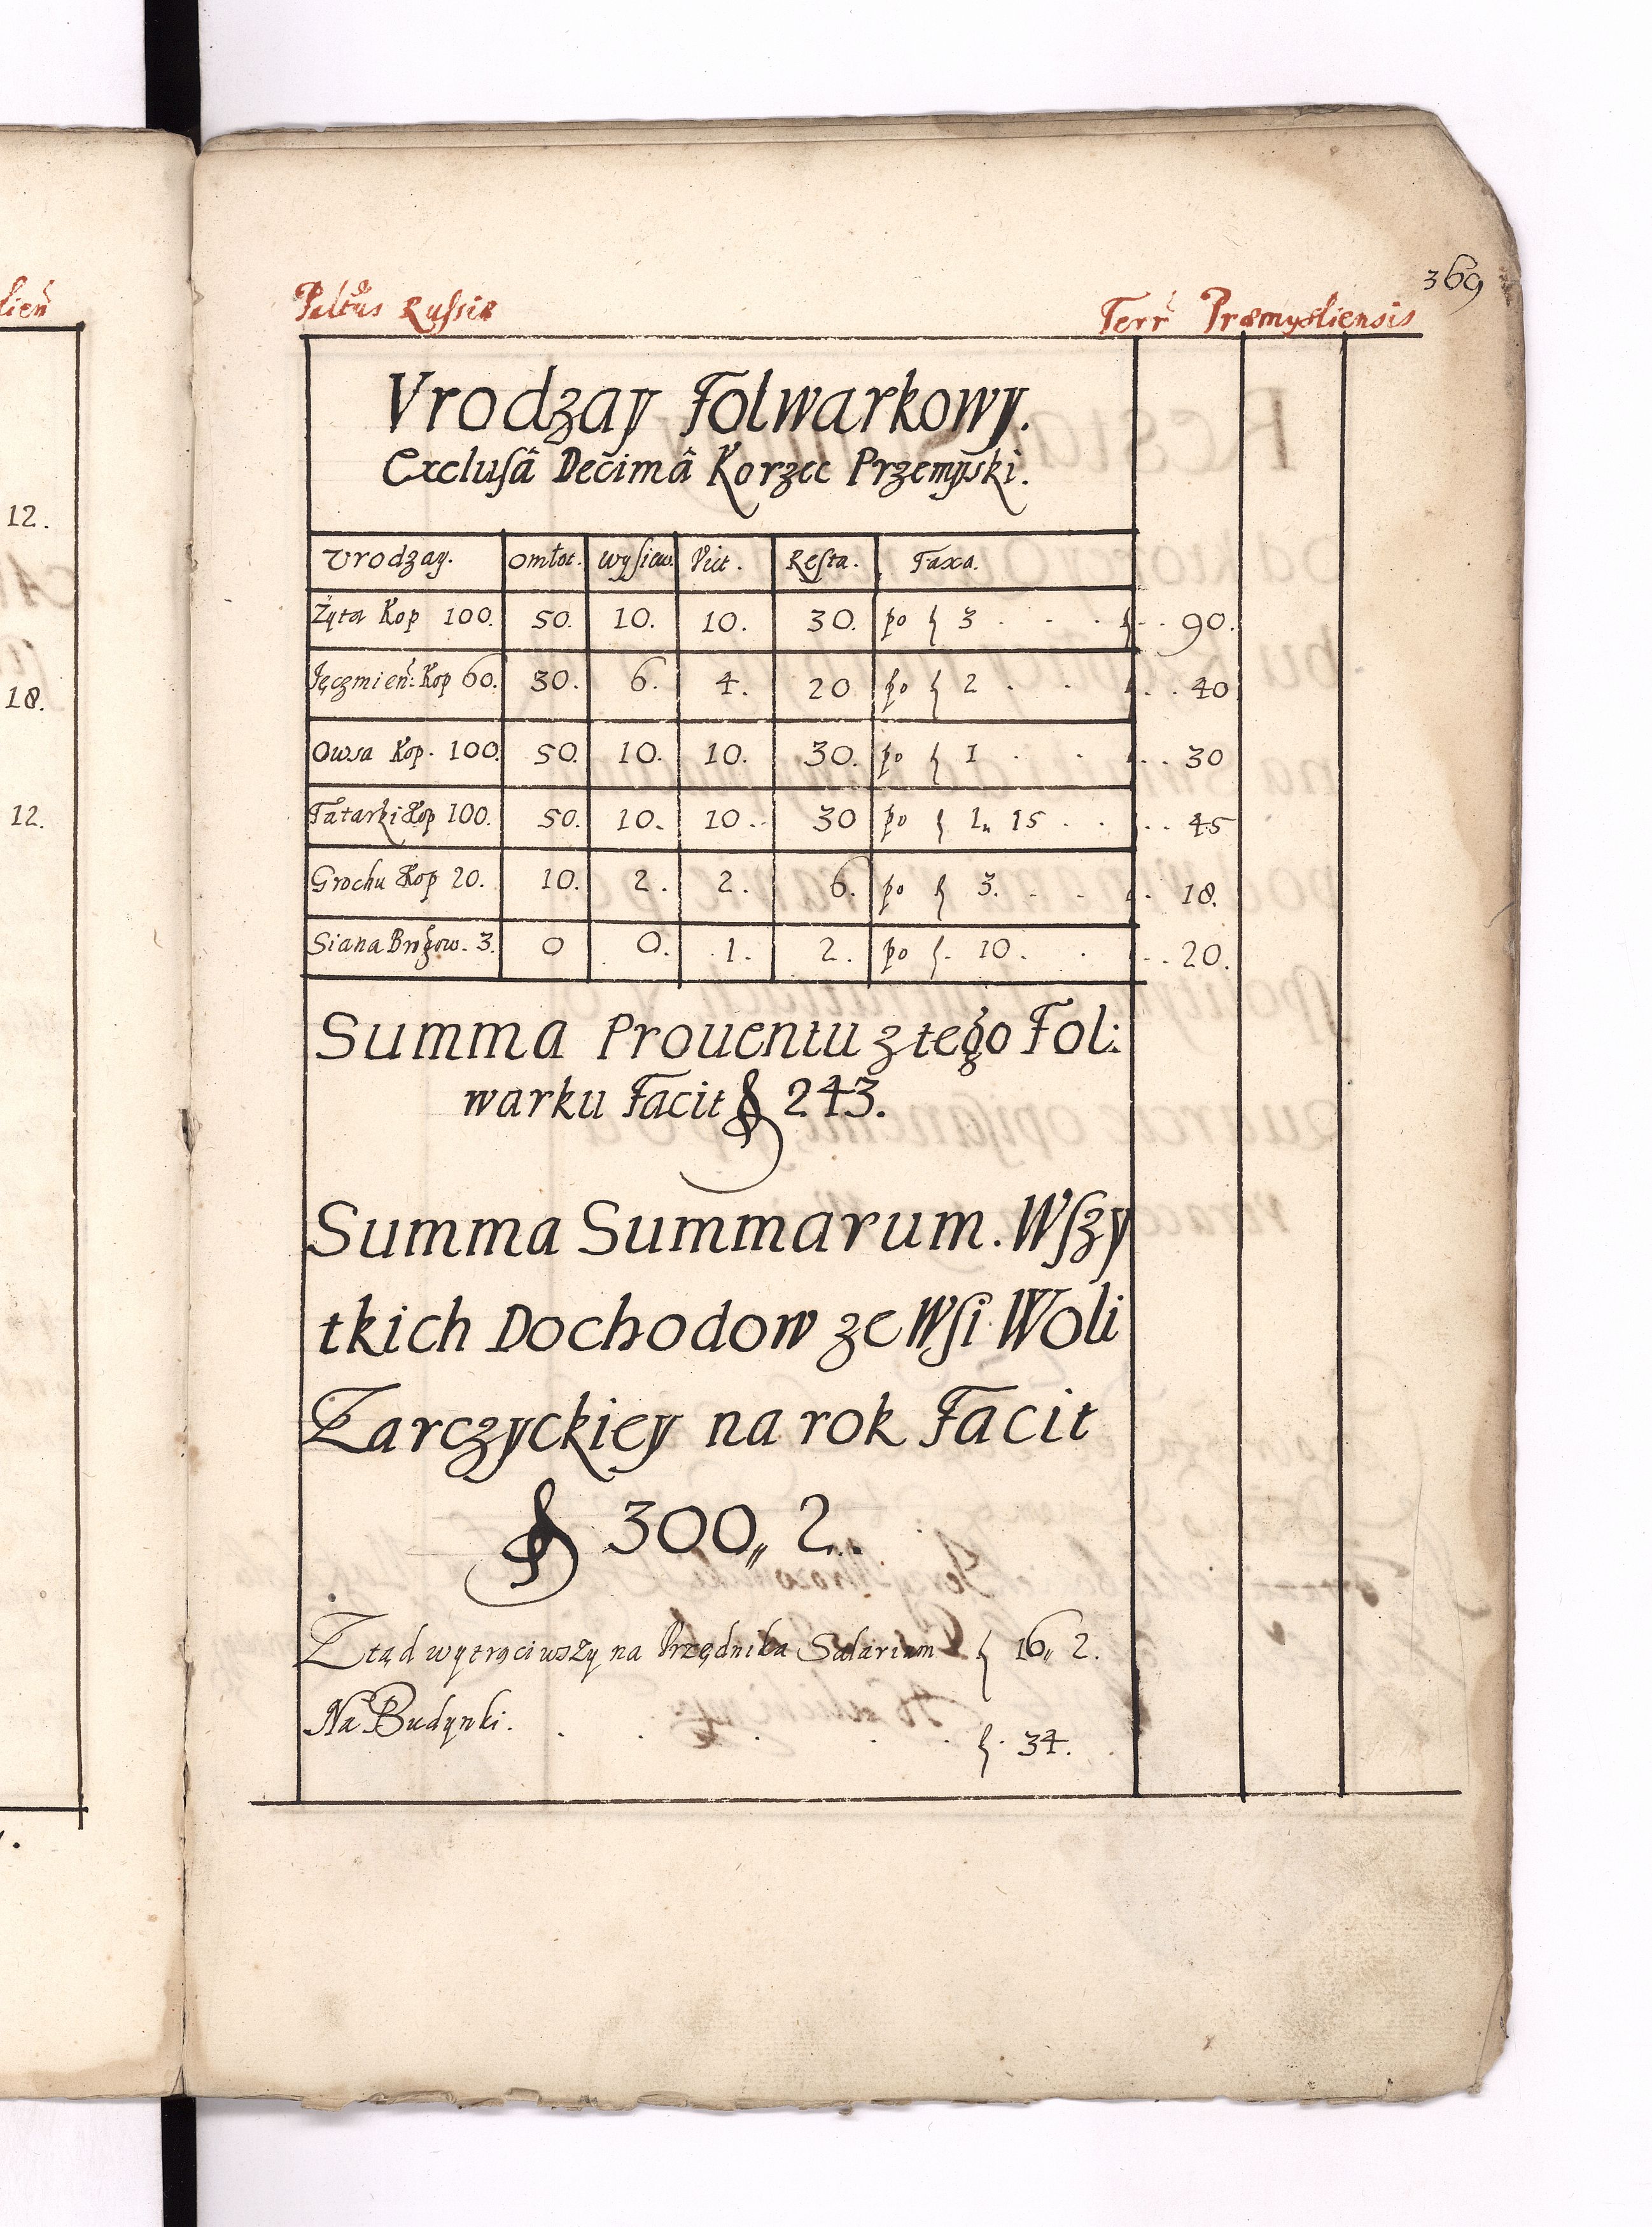 lień
12.
18.
12.
369
Paltūs Russiæ Terř Præmysliensis
Vrodzay Folwarkowy.
Exclusâ Decimâ Korzec Przemyski.
Vrodzay. Omłot. Wysiew. Vict. Resta. Taxa.
Żyta Kop 100. 50. 10. 10. 30. po 3 90.
Jęczmień: Kop 60. 30. 6. 4. 20 po 2 40
Owsa Kop. 100. 50. 10. 10. 30. po 1 30
Tatarki Kop 100. 50. 10. 10. 30 po 1„ 15 45
Grochu Kop 20. 10. 2. 2. 6. po 3. 18.
Siana Brogow. 3. 0 0. 1. 2. po 10. 20.
Summa Prouentu z tego Fol:
warku Facit 243.
Summa Summarum. Wszy
tkich Dochodow ze Wsi Woli
Zarczyckiey na rok Facit
300„ 2.
Ztąd wytrąciwszy na Vrzędnika Salarium 16„ 2.
Na Budynki. 34.